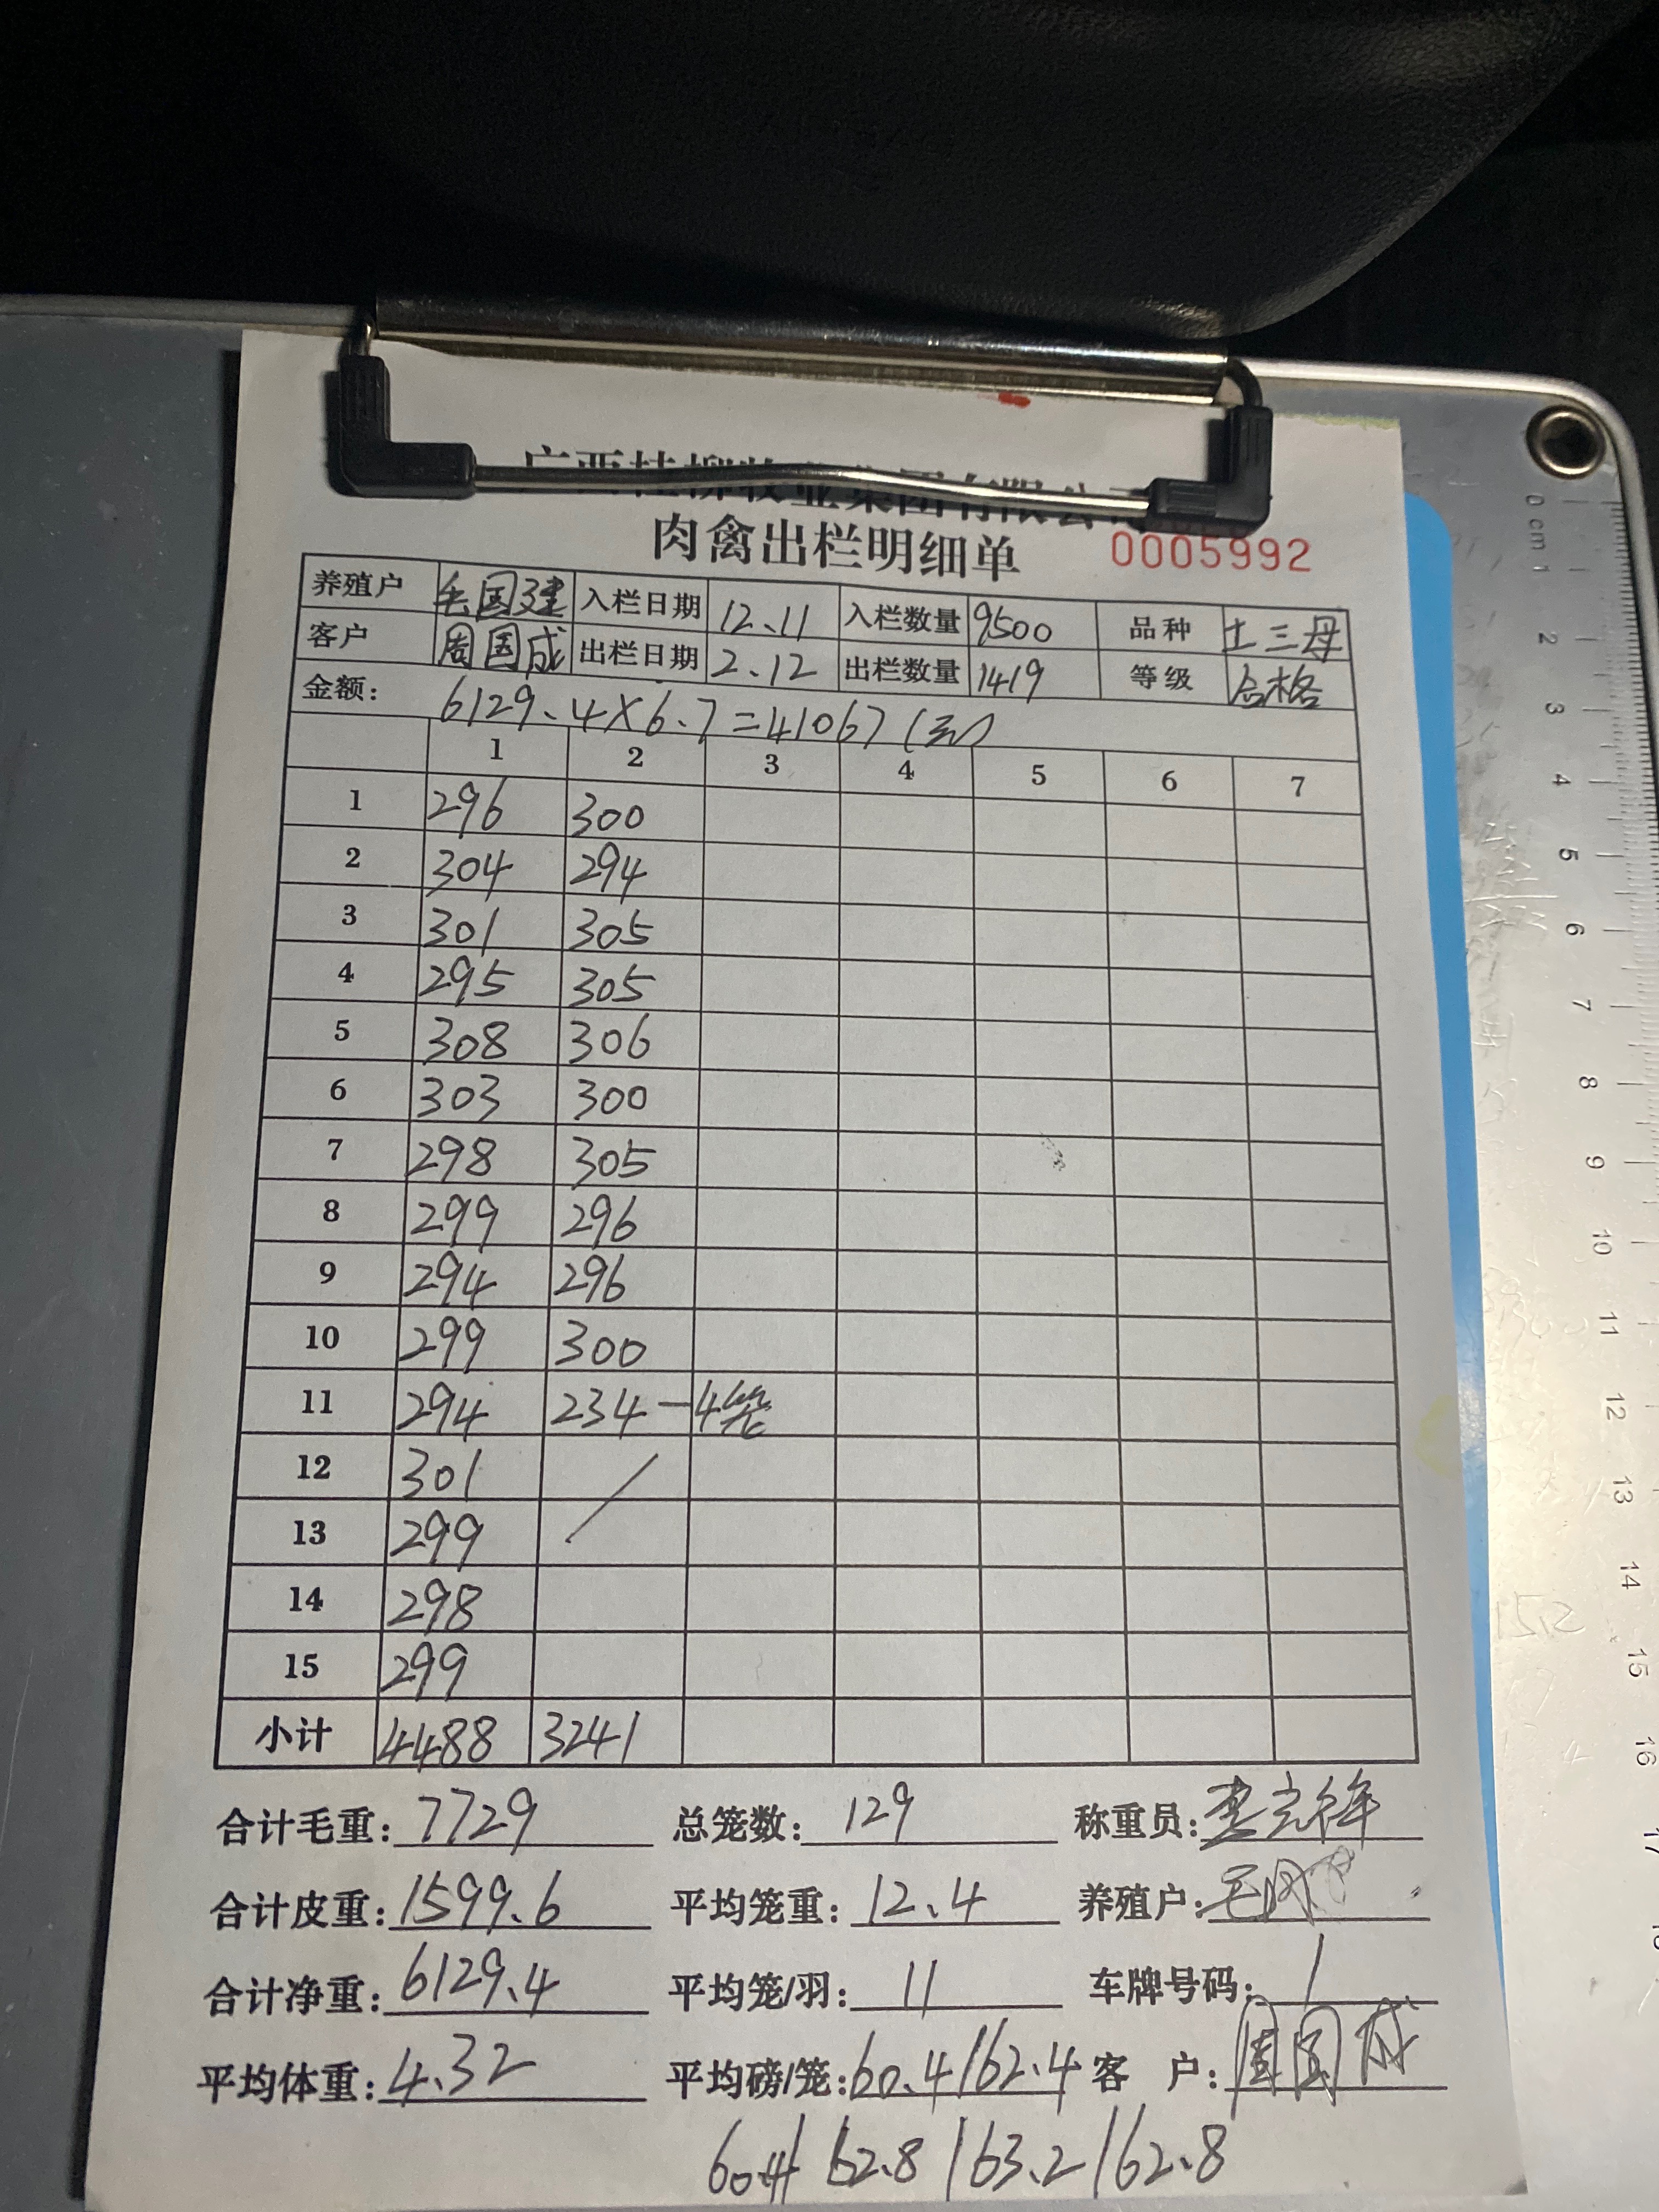 广西桂柳牧业集团有限公司
肉禽出栏明细单 0005992
养殖户 毛国建 入栏日期 12.11 入栏数量 9500 品种 土三母
客户 周国成 出栏日期 2.12 出栏数量 1419 等级 合格
金额: 6129.4×6.7=41067(元)
1 2 3 4 5 6 7
1 296 300
2 304 294
3 301 305
4 295 305
5 308 306
6 303 300
7 298 305
8 299 296
9 294 296
10 299 300
11 294 234 — 4笼
12 301 /
13 299
14 298
15 299
小计 4488 3241
合计毛重: 7729 总笼数: 129 称重员:
合计皮重: 1599.6 平均笼重: 12.4 养殖户:
合计净重: 6129.4 平均笼/羽: 11 车牌号码: /
平均体重: 4.32 平均磅/笼: 60.4/62.4 客户: 周国成
62.8/63.2/62.8
0 cm 1 2 3 4 5 6 7 8 9 10 11 12 13 14 15 16 17